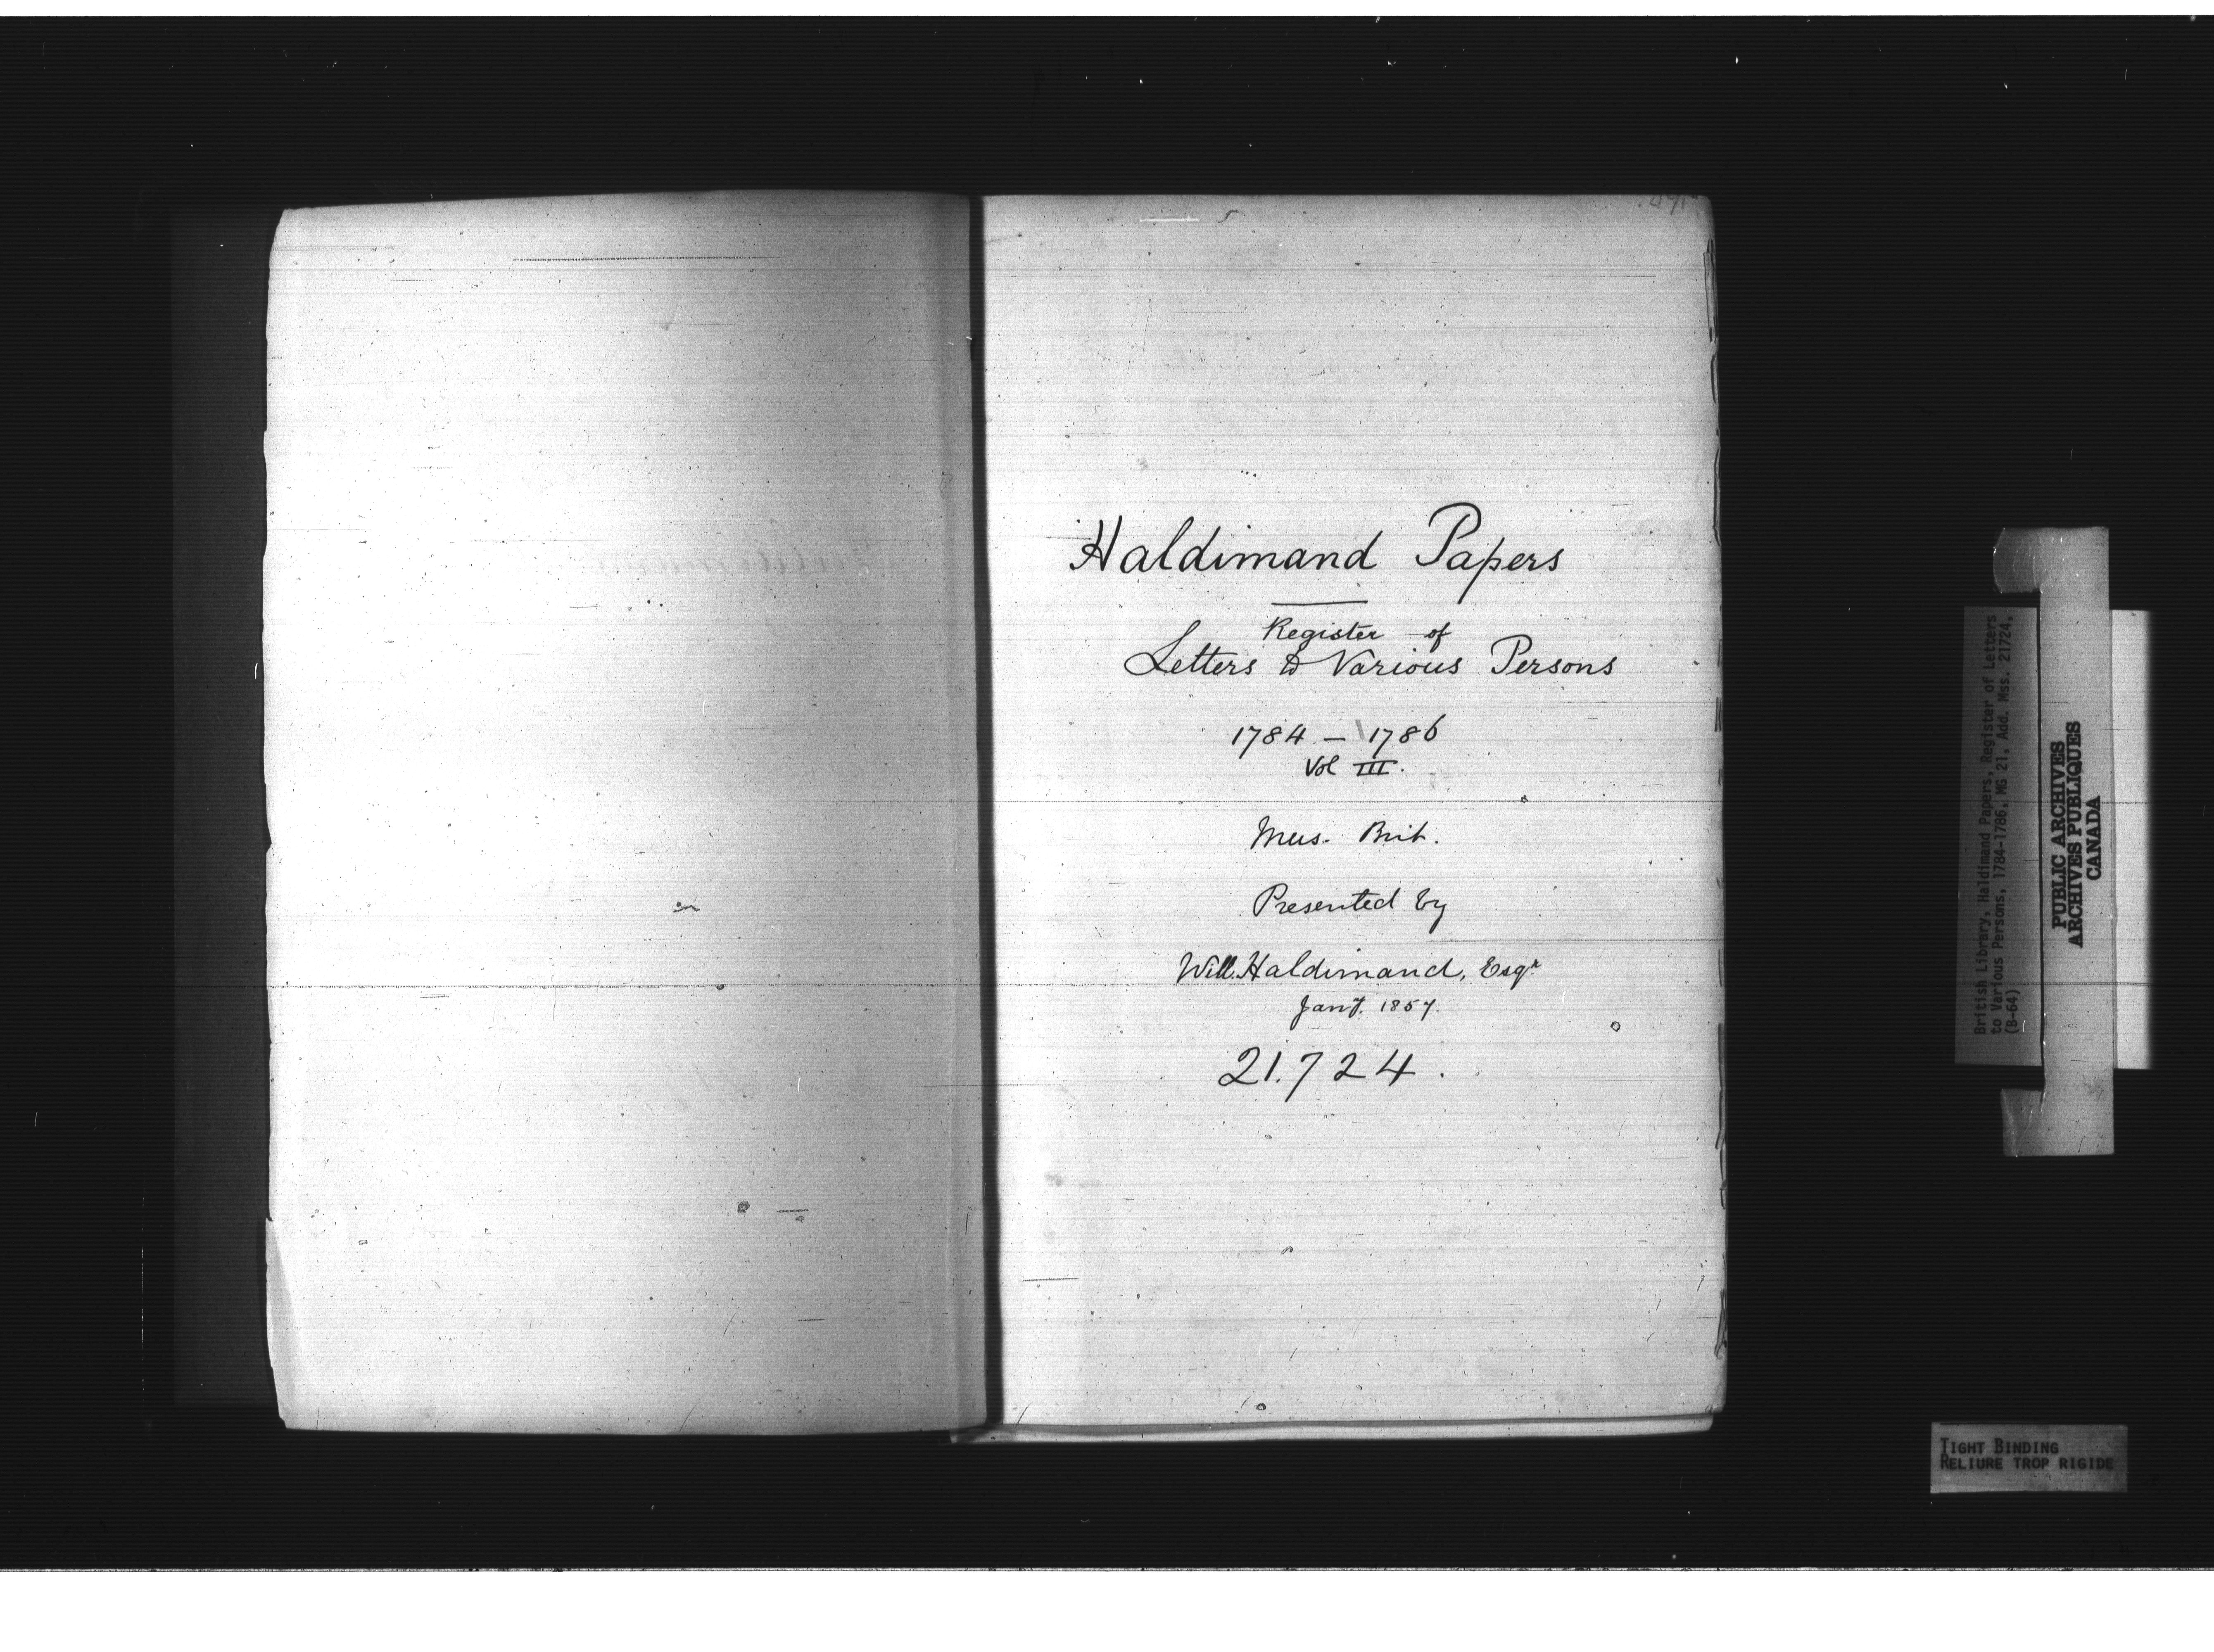 Haldimand Papers
Register of
Letters to Various Persons
1784 – 1786
Vol III.
Mus. Brit.
Presented by
Will. Haldimand, Esqr
Jany. 1857.
21.724.
British Library, Haldimand Papers, Register of Letters
to Various Persons, 1784-1786, MG 21, Add. Mss. 21724,
(B-64)
PUBLIC ARCHIVES
ARCHIVES PUBLIQUES
CANADA
TIGHT BINDING
RELIURE TROP RIGIDE